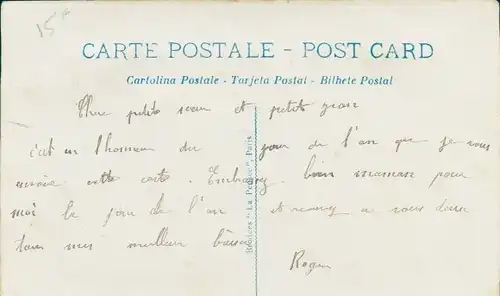 15 F
CARTE POSTALE - POST CARD
Cartolina Postale - Tarjeta Postal - Bilhete Postal
Chere petite sœur et petit
c'est en l'honneur du jour de l'an que je vous
envoie cette carte. Embrassez bien maman pour
moi le jour de l'an et recevez a vous deux
tous mes meilleur baiser
Roger
"La Pensée", Paris